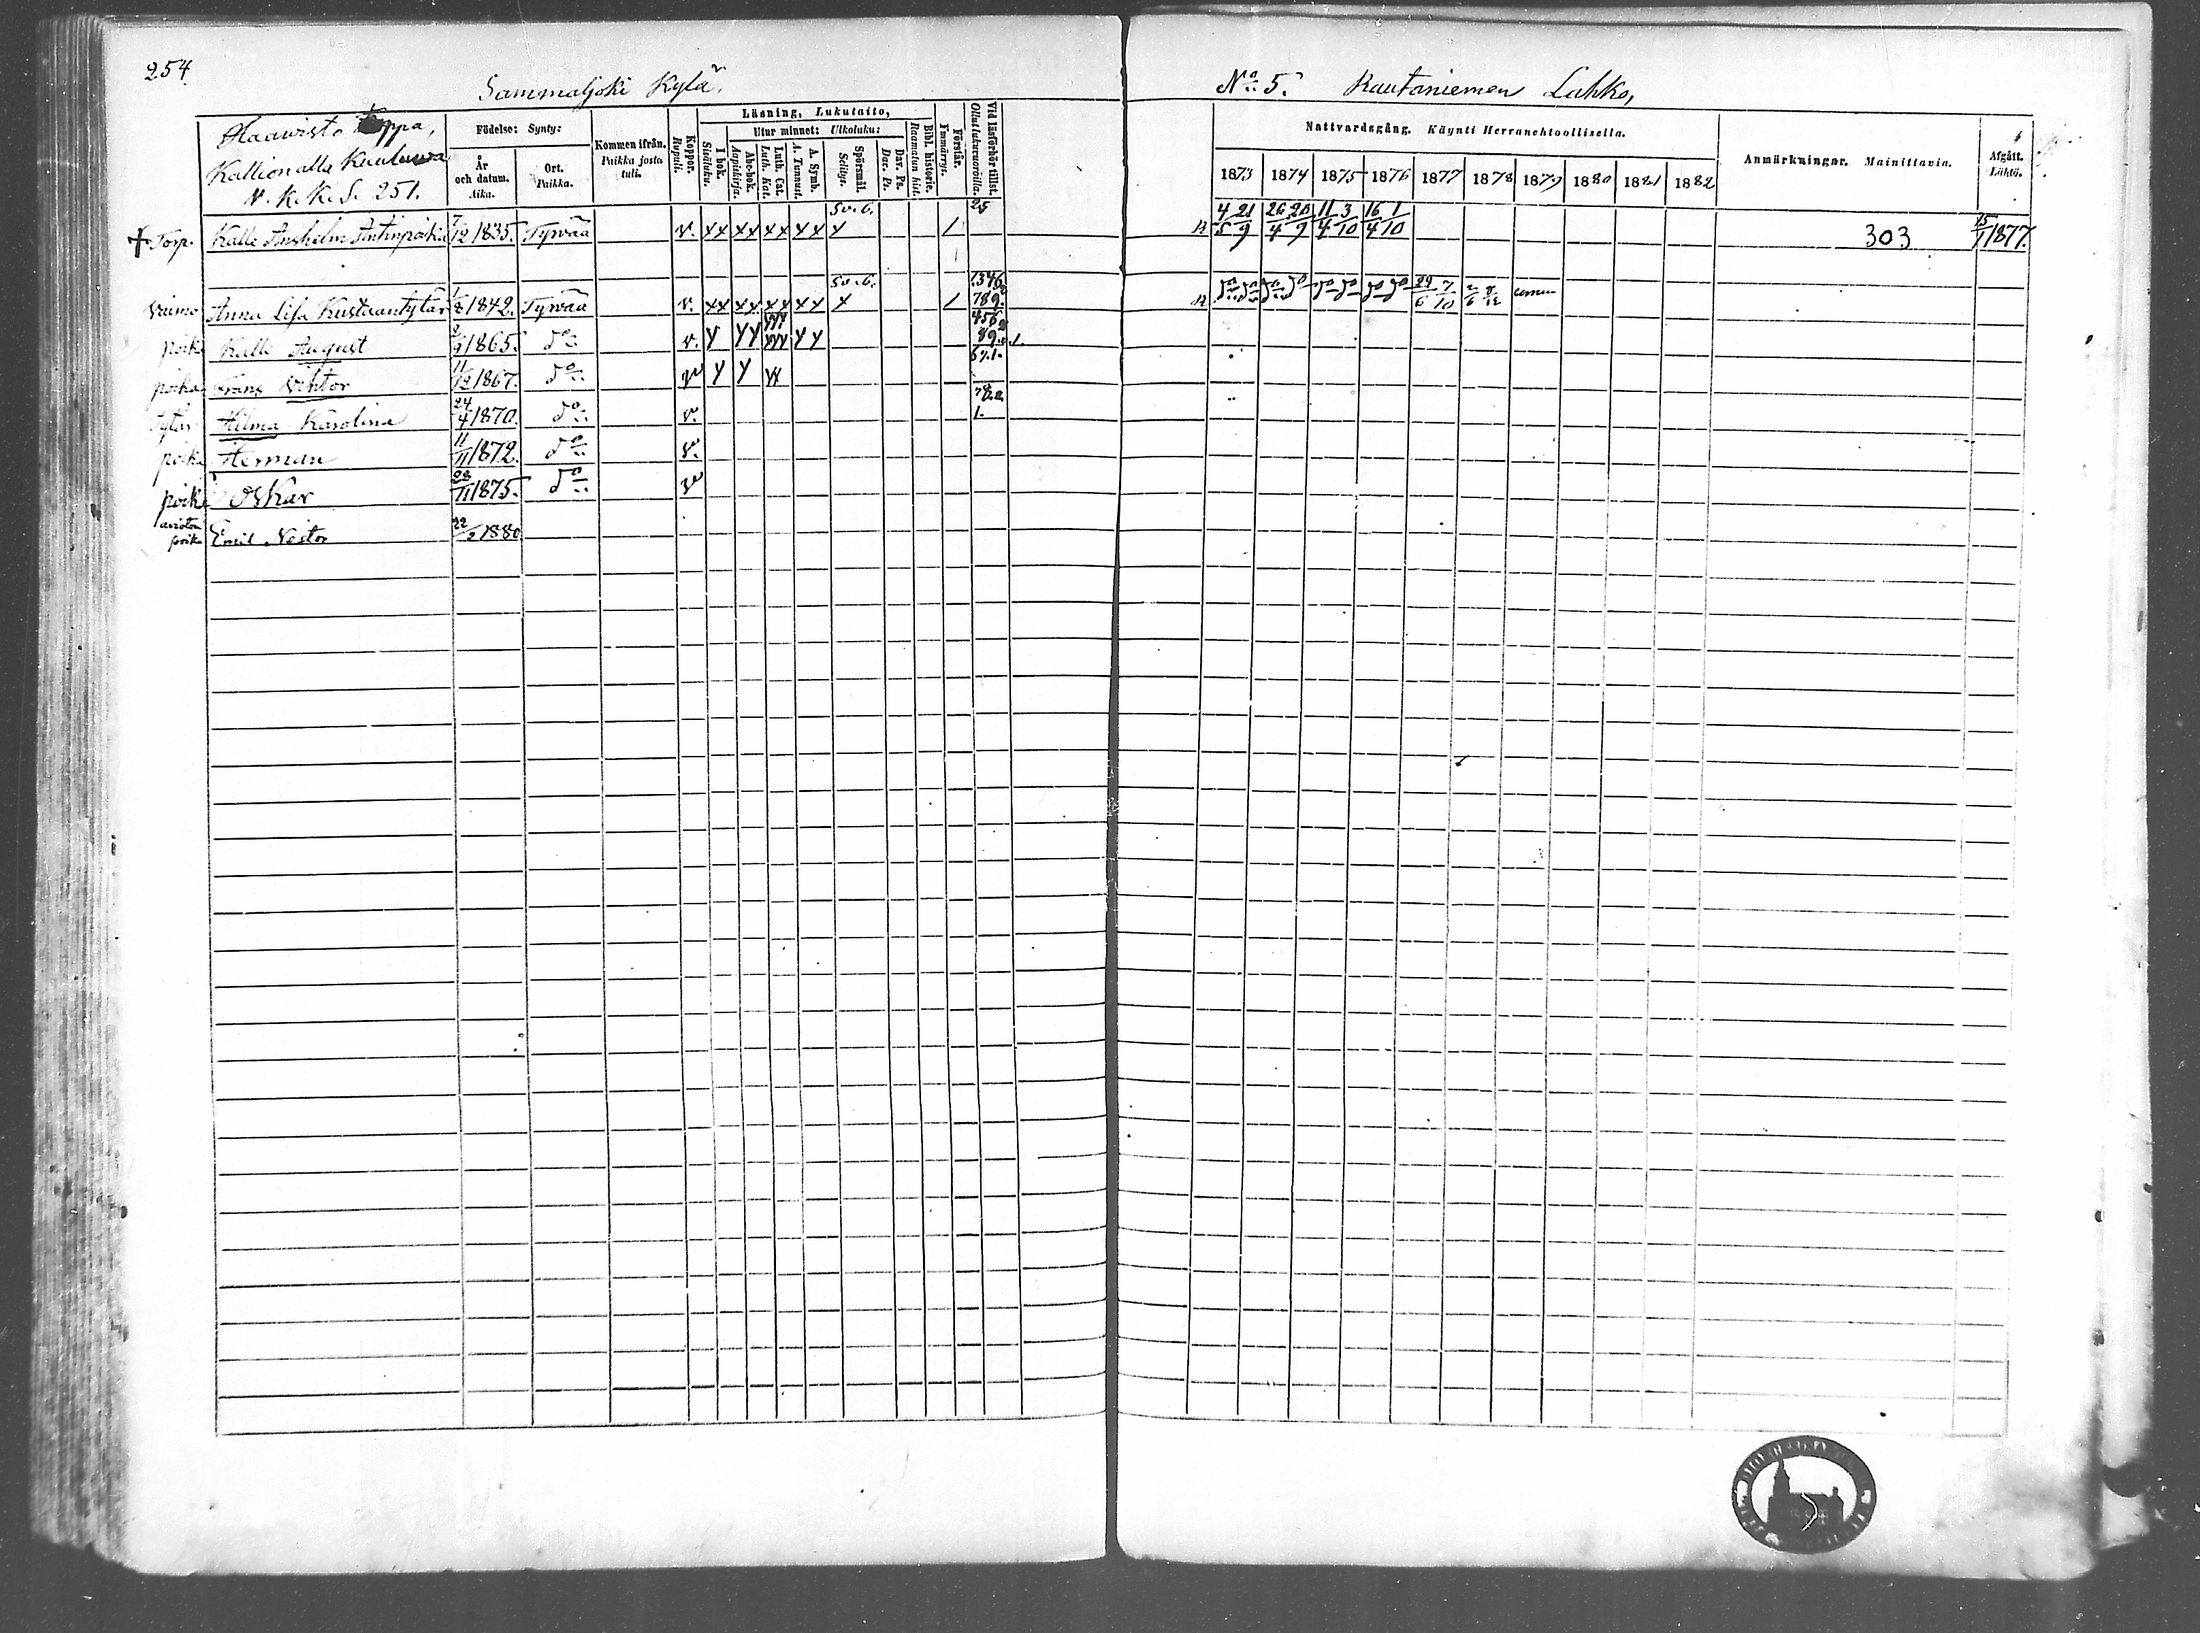 254.
Sammaljoki Kylä.
No 5. Rautaniemen Lahko,
Haavisto
Kallionalla
V. K. K. S. 251.
Födelse: Synty:
År och datum. Aika.
Ort. Paikka.
Kommen ifrån. Paikka josta tuli.
Koppor. Rupuli.
Läsning, Lukutaito,
I bok. Sisäluku.
Utur minnet: Ulkoluku:
Abc-bok. Aapiskirja.
Luth. Cat. Luth. Kat.
A. Symb. A. Tunnust.
Spörsmål. Selitys.
Dav. Ps. Dav. Ps.
Bibl. historie. Raamatun hist.
Förstår. Ymmärrys.
Vid läsförhör tillst. Ollut lukuvuoroilla.
Nattvardsgång. Käynti Herranehtoollisella.
1873 1874 1875 1876 1877 1878 1879 1880 1881 1882
Anmärkningar. Mainittavia.
Afgått. Lähtö.
Sv. 6. 25
+ Torp. Kalle Anshelm Antinpoika 7/12 1835. Tyrvää v. xx xx xx xx x / R 4/5 21/9 26/4 20/9 11/4 3/10 16/4 1/10 303 15/1 1877.
Sv. 6. 1346
Vaimo Anna Lisa Kustaantytär 1/8 1842. Tyrvää v. xx xx xx xx x / 789. R do do do do do do do do 29/6 7/10 2/6 8/12
poika Kalle August 2/9 1865. do v.
poika Frans Vihtor 11/12 1867. do v
Tytär Helma Karolina 24/4 1870. do v.
poika Herman 11/11 1872. do v.
poika Oskar 28/11 1875. do v
avioton poika Emil Nestor 22/2 1880